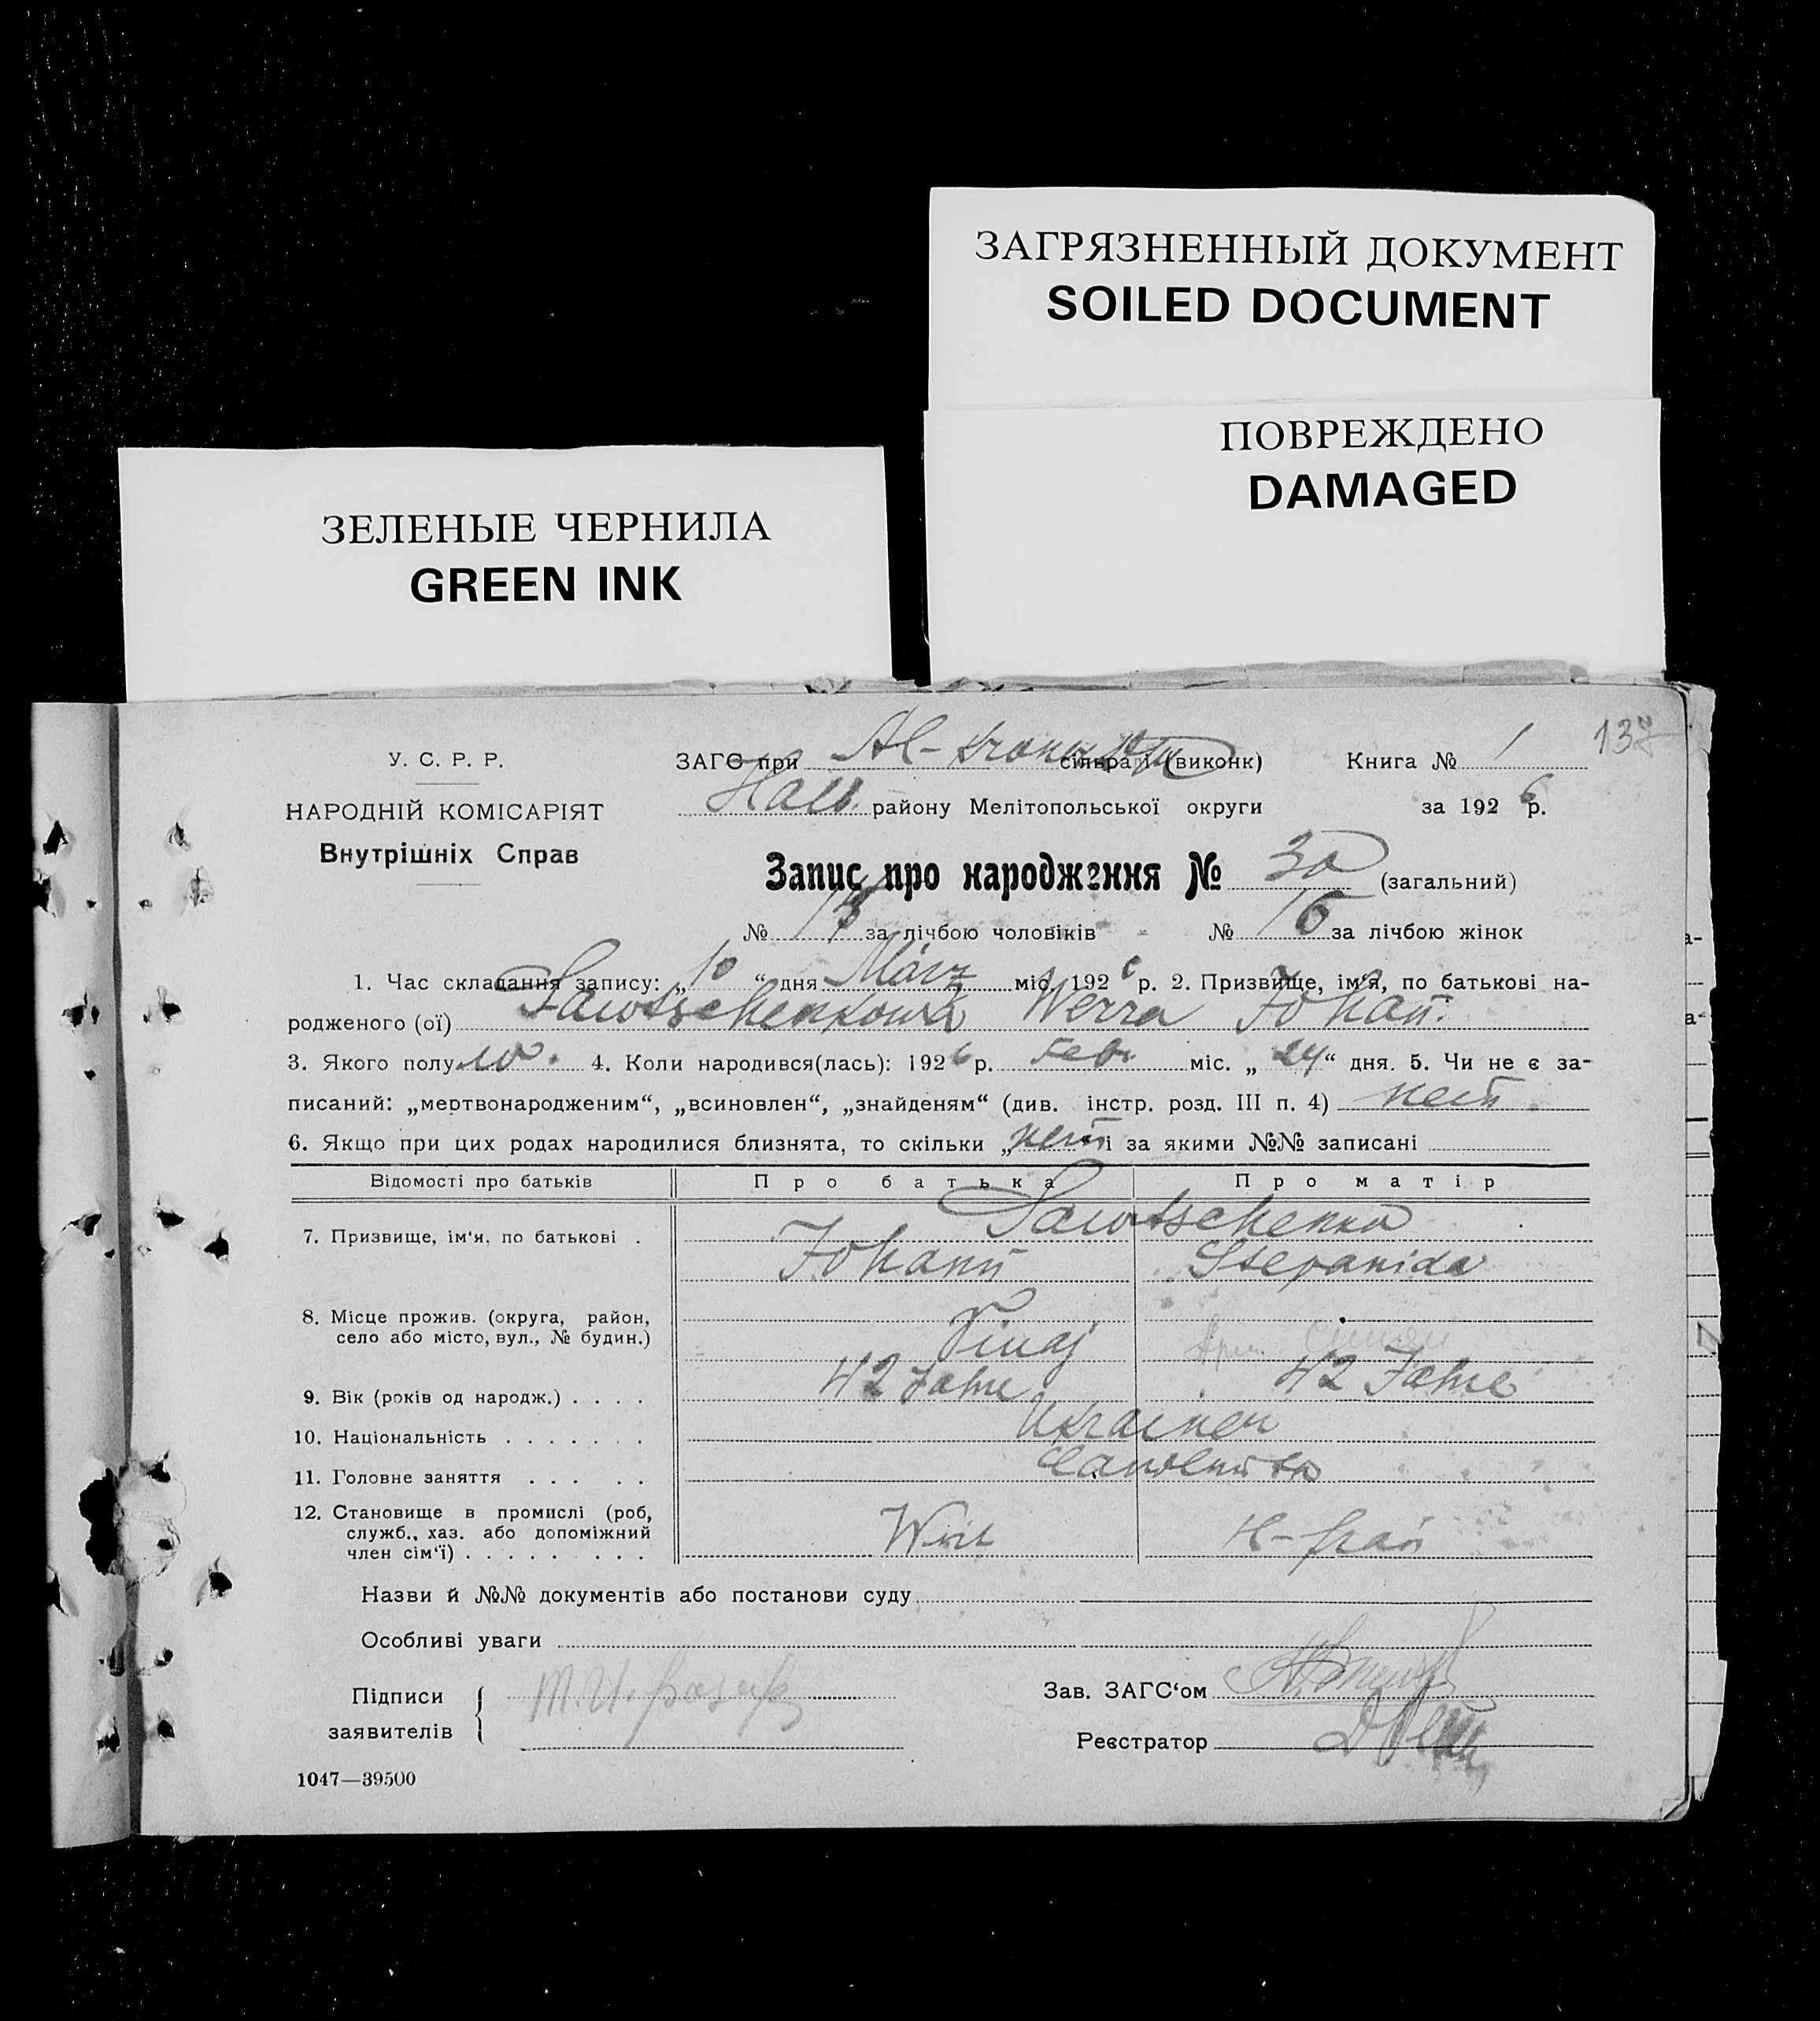 ЗАГРЯЗНЕННЫЙ ДОКУМЕНТ
SOILED DOCUMENT
ПОВРЕЖДЕНО
DAMAGED
ЗЕЛЕНЫЕ ЧЕРНИЛА
GREEN INK
У. С. Р. Р.
НАРОДНІЙ КОМІСАРІЯТ
Внутрішніх Справ
ЗАГС при Al- сільраді (виконк) Книга № 1
Halb. району Мелітопольської округи за 1926 р.
Запис про народження № 30 (загальний)
№ за лічбою чоловіків № 16 за лічбою жінок
1. Час складання запису: „10“ дня März міс. 1926 р. 2. Призвище, ім'я, по батькові на-
родженого (ої) Sawtschenkowa Werra Johan:
3. Якого полу 4. Коли народився(лась): 1926 р. Febr. міс. „24“ дня. 5. Чи не є за-
писаний: „мертвонародженим“, „всиновлен“, „знайденям“ (див. інстр. розд. III п. 4) нет.
6. Якщо при цих родах народилися близнята, то скільки „нет і за якими №№ записані
Відомості про батьків Про батька Про матір
7. Призвище, ім'я, по батькові . Sawtschenko
Johann Stepanida
8. Місце прожив. (округа, район,
село або місто, вул., № будин.)
9. Вік (років од народж.) . . . . 42 Jahre 42 Jahre
10. Національність . . . . . . . Ukrainer
11. Головне заняття . . . . .
12. Становище в промислі (роб,
служб., хаз. або допоміжний
член сім'ї) . . . . . . . . . Wirt H-frau
Назви й №№ документів або постанови суду
Особливі уваги
Підписи
заявителів
Зав. ЗАГС'ом
Реєстратор
1047—39500